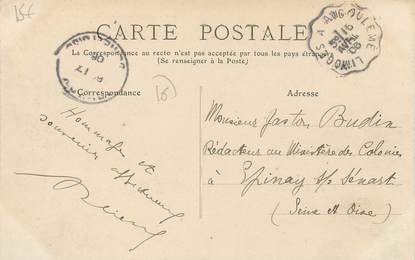 15f
CARTE POSTALE
La Correspondance au recto n'est pas acceptée par tous les pays étrangers
(Se renseigner à la Poste.)
LIMOGES A ANGOULEME
Correspondance
Adresse
Hommages et
souvenirs affectueux
Monsieur Gaston Budin
Rédacteur au Ministère des Colonies
à Epinay s/s Sénart
(Seine et Oise)